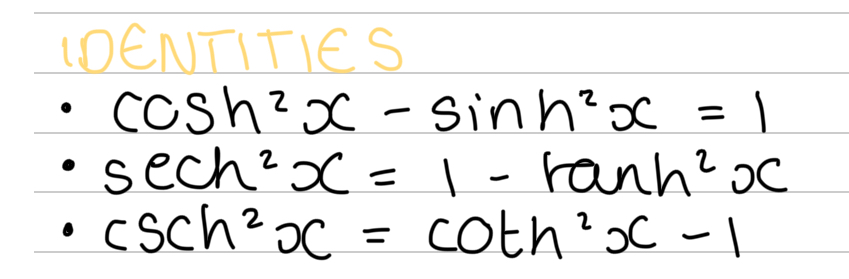 IDENTITIES
• cosh²x - sinh²x = 1
• sech²x = 1 - tanh²x
• csch²x = coth²x - 1